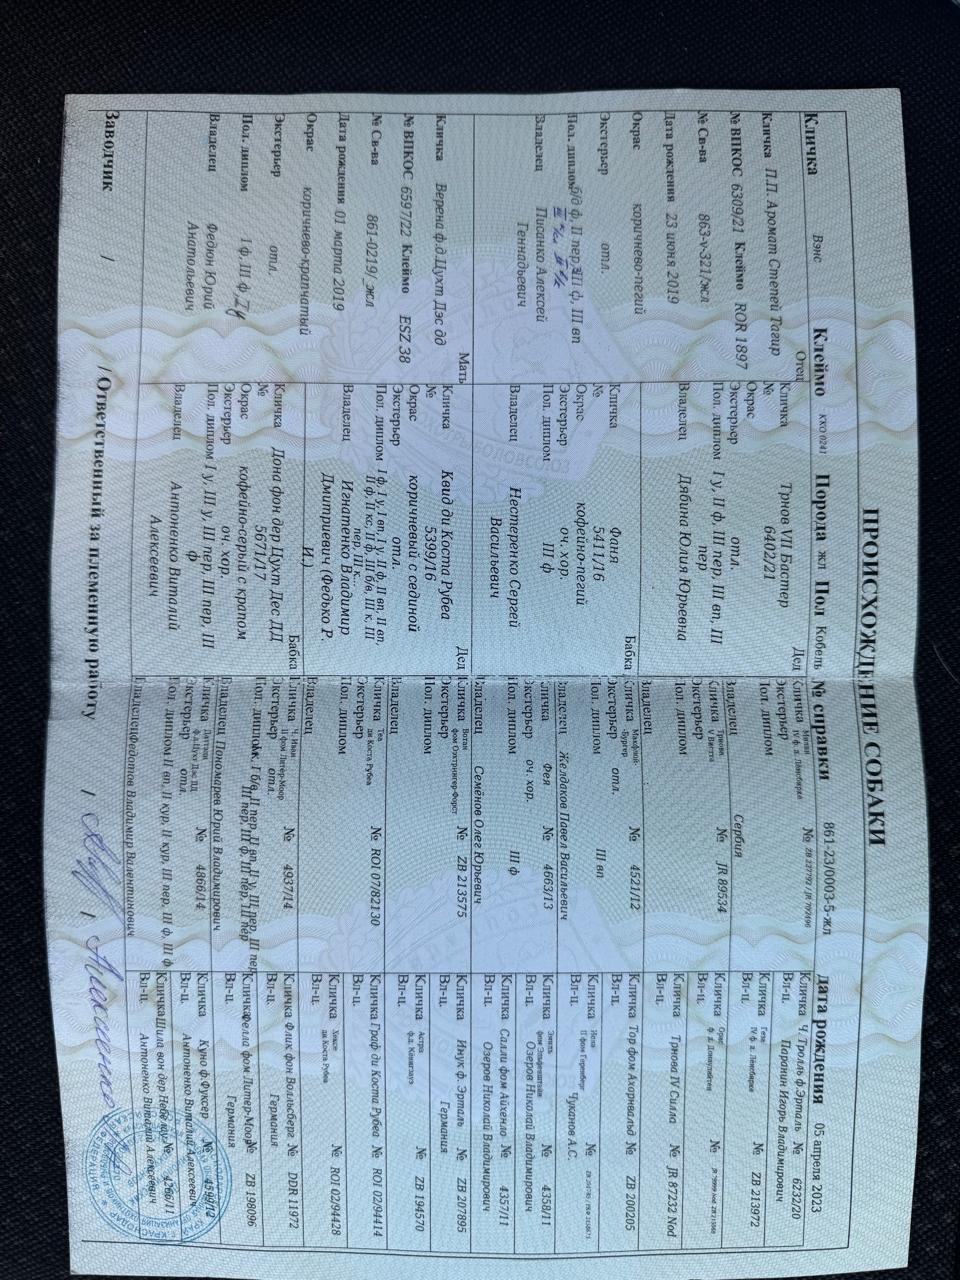 ПРОИСХОЖДЕНИЕ СОБАКИ
Кличка Вэнс Клеймо ККО 0241 Порода жл Пол Кобель № справки 861-23/0003-5-жл Дата рождения 05 апреля 2023
Отец
Кличка П.П. Аромат Степей Тагир
№ ВПКОС 6309/21 Клеймо ROR 1897
№ Св-ва 863-v-321/жл
Дата рождения 23 июня 2019
Окрас коричнево-пегий
Экстерьер отл.
Пол. диплом б/д ф, II пер, III ф, III вп
Владелец Писанко Алексей
Геннадьевич
Мать
Кличка Верена ф.д.Цухт Дэс дд
№ ВПКОС 6597/22 Клеймо ESZ 38
№ Св-ва 861-0219/_жл
Дата рождения 01 марта 2019
Окрас коричнево-крапчатый
Экстерьер отл.
Пол. диплом I ф, III ф,
Владелец Федюн Юрий
Анатольевич
Дед
Кличка Трнов VII Бастер
№ 6402/21
Окрас
Экстерьер отл.
Пол. диплом I у, II ф, III пер, III вп, III
пер
Владелец Дябина Юлия Юрьевна
Бабка
Кличка Фаня
№ 5411/16
Окрас кофейно-пегий
Экстерьер оч. хор.
Пол. диплом III ф
Владелец Нестеренко Сергей
Васильевич
Дед
Кличка Квид ди Коста Рубеа
№ 5399/16
Окрас коричневый с сединой
Экстерьер отл.
Пол. диплом I ф, I у, I вп, I у, II ф, II вп, II вп,
II ф, II кс, II ф, III б/в, III к, III
пер, III к...
Владелец Игнатенко Владимир
Дмитриевич (Федько Р.
И.)
Бабка
Кличка Дона фон дер Цухт Дес ДД
№ 5671/17
Окрас кофейно-серый с крапом
Экстерьер оч. хор.
Пол. диплом I у, III у, III пер, III пер, III
ф
Владелец Антоненко Виталий
Алексеевич
Кличка IV ф. д. Лёнебирке №
Экстерьер
Пол. диплом
Владелец Сербия
Кличка Трнова V Виетта № JR 89534
Экстерьер
Пол. диплом
Владелец
Кличка № 4521/12
Экстерьер отл.
Пол. диплом III вп
Владелец Желдаков Павел Васильевич
Кличка Фея № 4663/13
Экстерьер оч. хор.
Пол. диплом III ф
Владелец Семёнов Олег Юрьевич
Кличка Вотан № ZB 213575
Экстерьер
Пол. диплом
Владелец
Кличка Теа ди Коста Рубеа № ROI 07/82130
Экстерьер
Пол. диплом
Владелец
Кличка II фом Литер-Моор № 4937/14
Экстерьер отл.
Владелец Пономарев Юрий Владимирович
Кличка ф.д.Цухт Дэс ДД № 4866/14
Экстерьер отл.
Пол. диплом II вп, II кур, II кур, III пер, III ф, III ф
Владелец Федотов Владимир Валентинович
Кличка Ч. Тролль ф.Эрталь № 6232/20
Вл-ц. Паранин Игорь Владимирович
Кличка Геза IV ф. д. Лёнебирке № ZB 213972
Вл-ц.
Кличка №
Вл-ц.
Кличка Трнова IV Силла № JR 87232 Nod
Вл-ц.
Кличка Тор фом Ахорнвальд № ZB 200205
Вл-ц.
Кличка №
Вл-ц. Чуканов А.С.
Кличка № 4358/11
Вл-ц. Озеров Николай Владимирович
Кличка Салли фом Айхенло № 4357/11
Вл-ц. Озеров Николай Владимирович
Кличка Инук ф. Эрталь № ZB 207895
Вл-ц. Германия
Кличка Астра № ZB 194570
Вл-ц.
Кличка Граф ди Коста Рубеа № ROI 02/94414
Вл-ц.
Кличка ди Коста Рубеа № ROI 02/94428
Вл-ц.
Кличка Флик фонВолльсберг № DDR 11972
Вл-ц. Германия
Кличка фом Литер-Моор № ZB 198096
Вл-ц. Германия
Кличка Куно ф.Фуксер № 4599/12
Вл-ц. Антоненко Виталий Алексеевич
Кличка № 4266/11
Вл-ц. Антоненко Виталий Алексеевич
Заводчик / / Ответственный за племенную работу / /